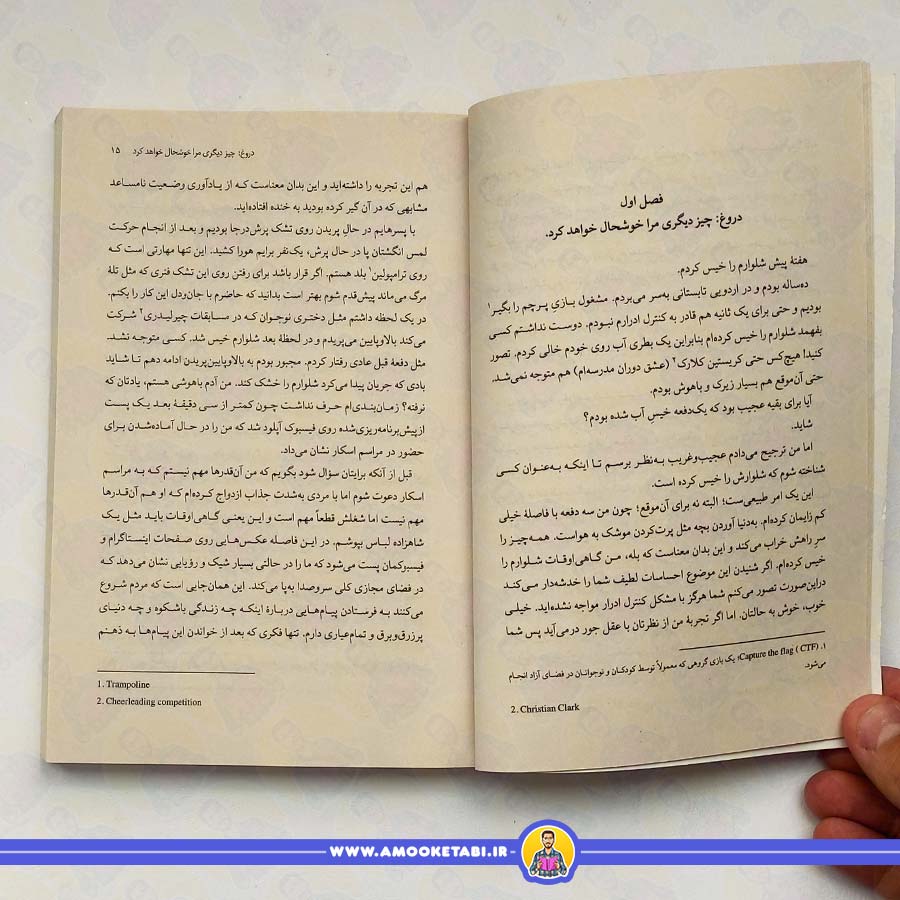 فصل اول
دروغ: چیز دیگری مرا خوشحال خواهد کرد.
هفتهٔ پیش شلوارم را خیس کردم.
ده‌ساله بودم و در اردویی تابستانی به‌سر می‌بردم. مشغول بازیِ پرچم را بگیر۱
بودیم و حتی برای یک ثانیه هم قادر به کنترل ادرارم نبودم. دوست نداشتم کسی
بفهمد شلوارم را خیس کرده‌ام بنابراین یک بطری آب روی خودم خالی کردم. تصور
کنید! هیچ‌کس حتی کریستین کلارک۲ (عشق دوران مدرسه‌ام) هم متوجه نمی‌شد.
حتی آن‌موقع هم بسیار زیرک و باهوش بودم.
آیا برای بقیه عجیب بود که یک‌دفعه خیسِ آب شده بودم؟
شاید.
اما من ترجیح می‌دادم عجیب‌وغریب به‌نظر برسم تا اینکه به‌عنوان کسی
شناخته شوم که شلوارش را خیس کرده است.
این یک امر طبیعی‌ست؛ البته نه برای آن‌موقع؛ چون من سه دفعه با فاصلهٔ خیلی
کم زایمان کرده‌ام. به‌دنیا آوردن بچه مثل پرت‌کردن موشک به هواست. همه‌چیز را
سرِ راهش خراب می‌کند و این بدان معناست که بله، من گاهی‌اوقات شلوارم را
خیس کرده‌ام. اگر شنیدن این موضوع احساسات لطیف شما را خدشه‌دار می‌کند
دراین‌صورت تصور می‌کنم شما هرگز با مشکل کنترل ادرار مواجه نشده‌اید. خیلی
خوب، خوش به حالتان. اما اگر تجربهٔ من از نظرتان با عقل جور درمی‌آید پس شما
۱. Capture the flag ( CTF): یک بازی گروهی که معمولاً توسط کودکان و نوجوانان در فضای آزاد انجام
می‌شود.
2. Christian Clark
دروغ: چیز دیگری مرا خوشحال خواهد کرد ۱۵
هم این تجربه را داشته‌اید و این بدان معناست که از یادآوری وضعیت نامساعد
مشابهی که در آن گیر کرده بودید به خنده افتاده‌اید.
با پسرهایم در حالِ پریدن روی تشک پرش‌درجا بودیم و بعد از انجام حرکت
لمس انگشتان پا در حال پرش، یک‌نفر برایم هورا کشید. این تنها مهارتی است که
روی ترامپولین۱ بلد هستم. اگر قرار باشد برای رفتن روی این تشک فنری که مثل تلهٔ
مرگ می‌ماند پیش‌قدم شوم بهتر است بدانید که حاضرم با جان‌ودل این کار را بکنم.
در یک لحظه داشتم مثل دختری نوجوان که در مسابقات چیرلیدری۲ شرکت
می‌کند بالاوپایین می‌پریدم و در لحظهٔ بعد شلوارم خیس شد. کسی متوجه نشد.
مثل دفعهٔ قبل عادی رفتار کردم. مجبور بودم به بالاوپایین‌پریدن ادامه دهم تا شاید
بادی که جریان پیدا می‌کرد شلوارم را خشک کند. من آدم باهوشی هستم، یادتان که
نرفته؟ زمان‌بندی‌ام حرف نداشت چون کمتر از سی دقیقهٔ بعد یک پست
از‌پیش‌برنامه‌ریزی‌شده روی فیسبوک آپلود شد که من را در حال آماده‌شدن برای
حضور در مراسم اسکار نشان می‌داد.
قبل از آنکه برایتان سؤال شود بگویم که من آن‌قدرها مهم نیستم که به مراسم
اسکار دعوت شوم اما با مردی به‌شدت جذاب ازدواج کرده‌ام که او هم آن‌قدرها
مهم نیست اما شغلش قطعاً مهم است و این یعنی گاهی‌اوقات باید مثل یک
شاهزاده لباس بپوشم. در این فاصله عکس‌هایی روی صفحات اینستاگرام و
فیسبوکمان پست می‌شود که ما را در حالتی بسیار شیک و رؤیایی نشان می‌دهد که
در فضای مجازی کلی سروصدا به‌پا می‌کند. این همان‌جایی است که مردم شروع
می‌کنند به فرستادن پیام‌هایی دربارهٔ اینکه چه زندگی باشکوه و چه دنیای
پرزرق‌وبرق و تمام‌عیاری دارم. تنها فکری که بعد از خواندن این پیام‌ها به ذهنم
1. Trampoline
2. Cheerleading competition
WWW.AMOOKETABI.IR